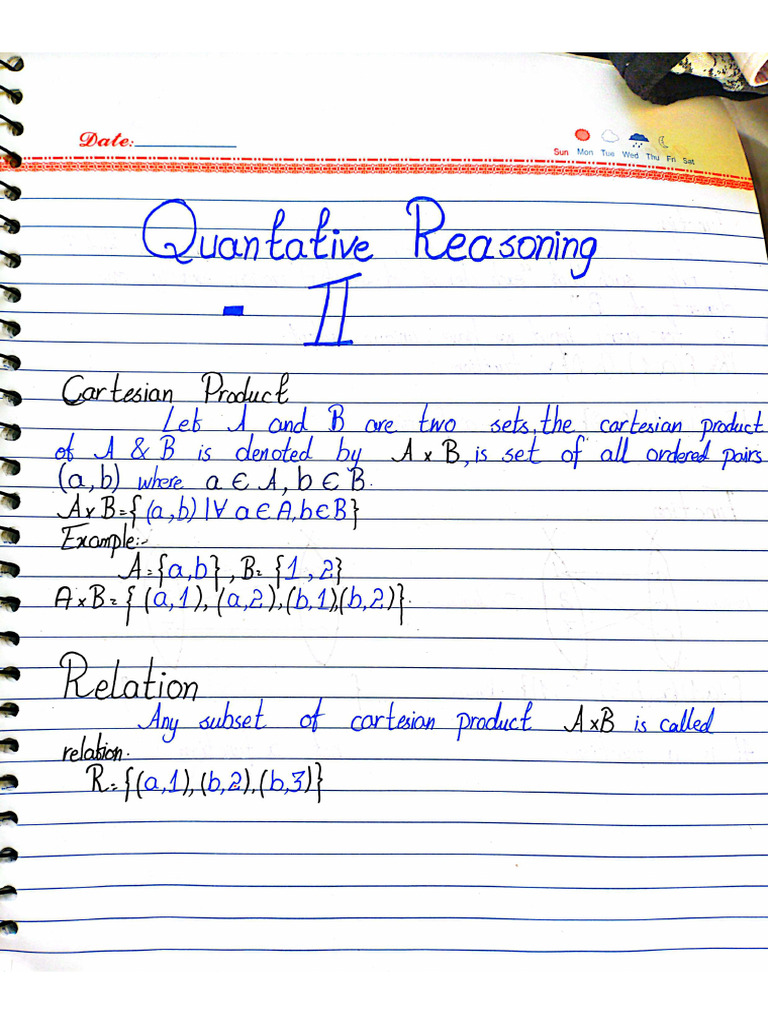 Date:
Sun Mon Tue Wed Thu Fri Sat
Quantative Reasoning
- II
Cartesian Product
Let A and B are two sets, the cartesian product
of A & B is denoted by A × B, is set of all ordered pairs
(a, b) where a ∈ A, b ∈ B.
A×B={(a,b) |∀ a∈A,b∈B}
Example:-
A={a,b}, B= {1, 2}
A×B={(a,1), (a,2),(b,1)(b,2)}.
Relation
Any subset of cartesian product A×B is called
relation.
R={(a,1),(b,2),(b,3)}